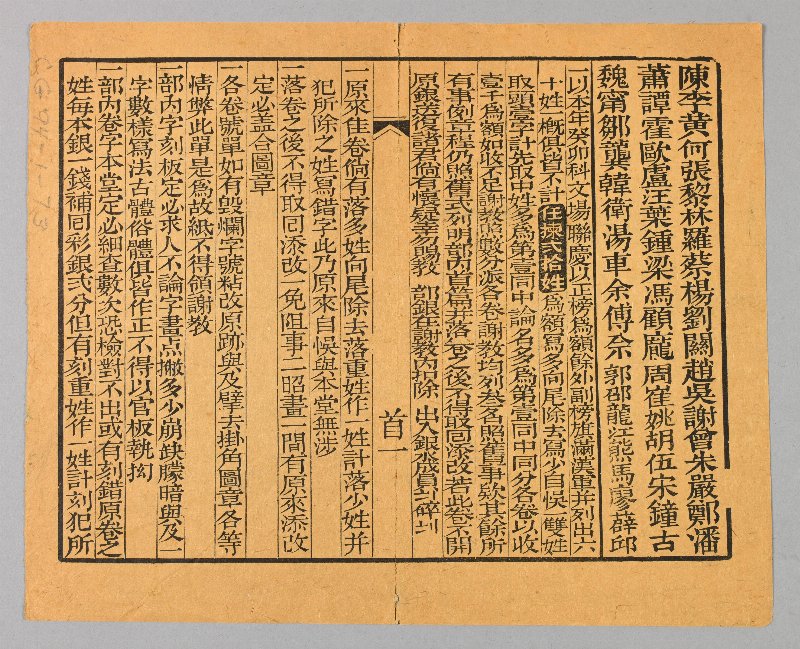 陳李黃何張黎林羅蔡楊劉關趙吳謝曾朱嚴鄭潘
蕭譚霍歐盧汪葉鍾梁馮顧龐周崔姚胡伍宋鐘古
魏甯鄒龔韓衛湯車余傅佘郭邵龍江熊馬廖薛邱
一以本年癸卯科文場聯慶以正榜為額餘外副榜旗滿漢軍并列出六
十姓一概俱皆不計任揀弍拾姓為額寫多向尾除去為少自悞雙姓
取頭壹字計先取中姓多為第壹同中論名多為第壹同中同分各卷以收
壹千為額如收不足謝教照數分派各卷謝教均列叁名照舊事欵其餘所
有事例章程仍照舊式列明部內頁篇并落卷之後不得取囘添改若此卷不開
原銀送復諸君倘有懷疑幸勿賜教 部銀在謝教內扣除 出入銀成員
首一
一原來住卷倘有落多姓向尾除去落重姓作一姓計落少姓并
犯所除之姓寫錯字此乃原來自悞與本堂無涉
一落卷之後不得取囘添改一免阻事二昭畫一間有原來添改
定必盖合圖章
一各卷號單如有毀爛字號粘改原跡與及擘去掛角圖章各等
情弊此單是為故紙不得領謝教
一部內字刻板定必求人不論字畫点撇多少崩缺朦暗與及一
字數樣寫法古體俗體俱皆作正不得以官板執拗
一部內卷字本堂定必細查數次恐檢對不出或有刻錯原卷之
姓每本銀一錢補囘彩銀弍分但有刻重姓作一姓計刻犯所